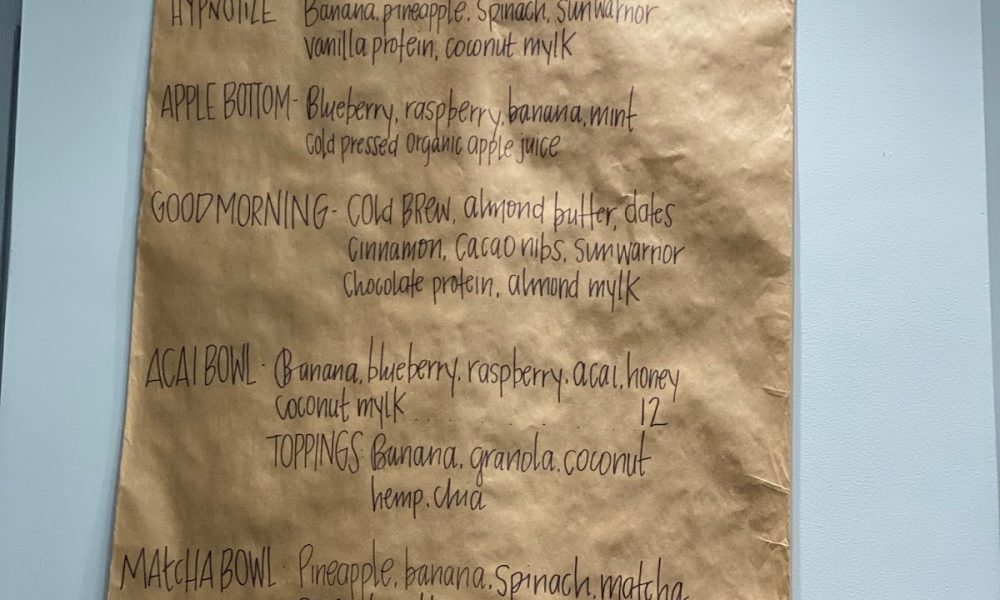 HYPNOTIZE - Banana, pineapple, spinach, sunwarrior
vanilla protein, coconut mylk
APPLE BOTTOM - Blueberry, raspberry, banana, mint
cold pressed organic apple juice
GOOD MORNING - COLd BREW, almond butter, dates
cinnamon, cacao nibs, sunwarrior
chocolate protein, almond mylk
ACAI BOWL - Banana, blueberry, raspberry, acai, honey
coconut mylk . . . . . . . 12
TOPPINGS Banana, granola, coconut
hemp, chia
MAtcHA BOWL - Pineapple, banana, spinach, matcha,